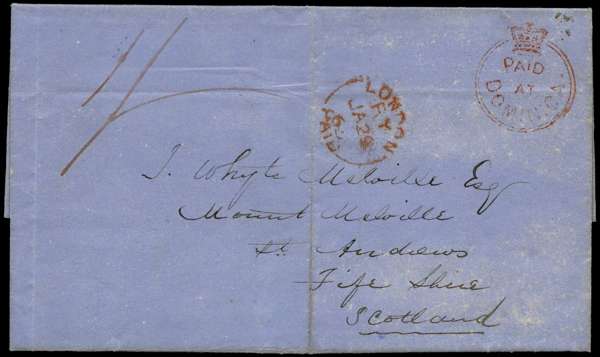 1/
PAID
AT
DOMINICA
LONDON
RY
JA29
62
PAID
J. Whyte Melville Esq
Mount Melville
St. Andrews
Fife Shire
Scotland